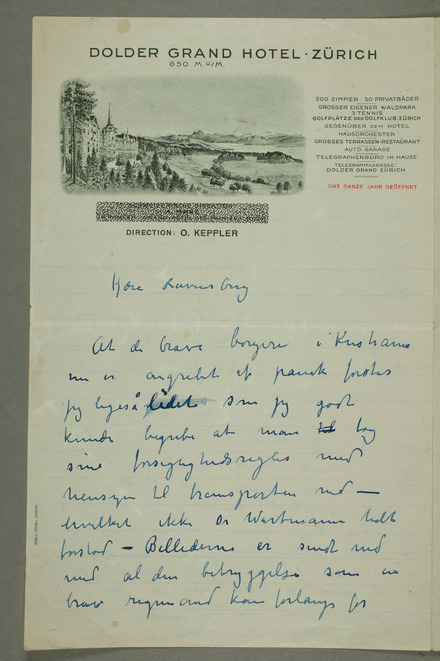 DOLDER GRAND HOTEL · ZÜRICH
650 M. ü/M.
200 ZIMMER · 50 PRIVATBÄDER
GROSSER EIGENER WALDPARK
3 TENNIS
GOLFPLÄTZE DES GOLFKLUB ZÜRICH
GEGENÜBER DEM HOTEL
HAUSORCHESTER
GROSSES TERRASSEN-RESTAURANT
AUTO-GARAGE
TELEGRAPHENBÜRO IM HAUSE
TELEGRAMMADRESSE:
DOLDER GRAND ZÜRICH
DAS GANZE JAHR GEÖFFNET
DIRECTION: O. KEPPLER
Kjære Ravensberg
At de brave borgere i Kristiania
nu er angrebet af panik forstår
jeg ligeså lidet som jeg godt
kunde begribe at man tog
sine forsigtighedsregler med
hensyn til transporten ned —
hvilket ikke Dr Wartmann helt
forstod — Billederne er sendt ned
med al den betryggelse som en
brav mand kan forlange for